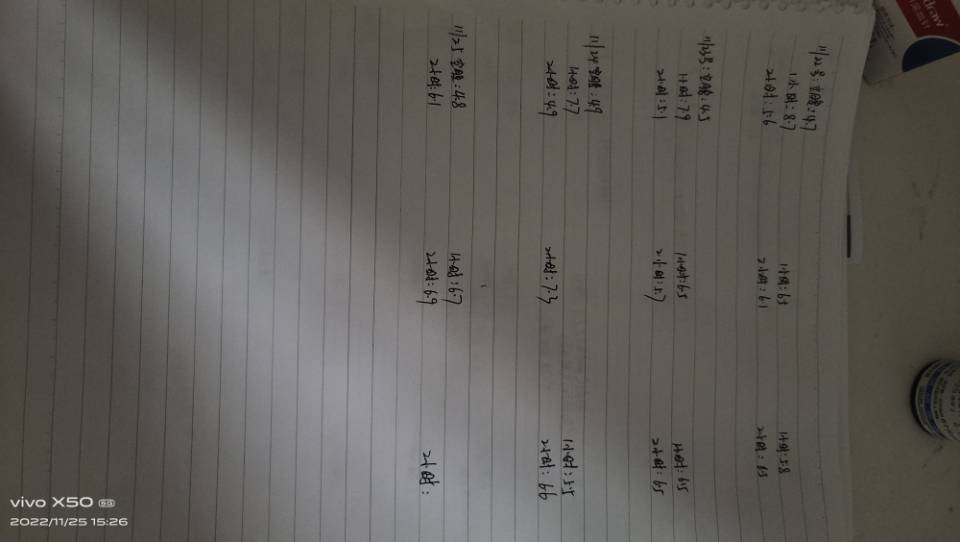 11/22号:空腹:4.7
1小时:8.7 1小时:6.3
2小时:5.6 2小时:6.1 1小时:5.8
2小时:6.3
11/23号:空腹:4.5
1小时:7.9 1小时:6.5 1小时:6.5
2小时:5.1 2小时:5.7 2小时:6.5
11/24 空腹:4.9
1小时:7.7 1小时:5.5
2小时:4.9 2小时:7.3 2小时:6.6
11/25 空腹:4.8
1小时:6.7
2小时:6.1 2小时:6.9 2小时:
vivo X50 5G
2022/11/25 15:26